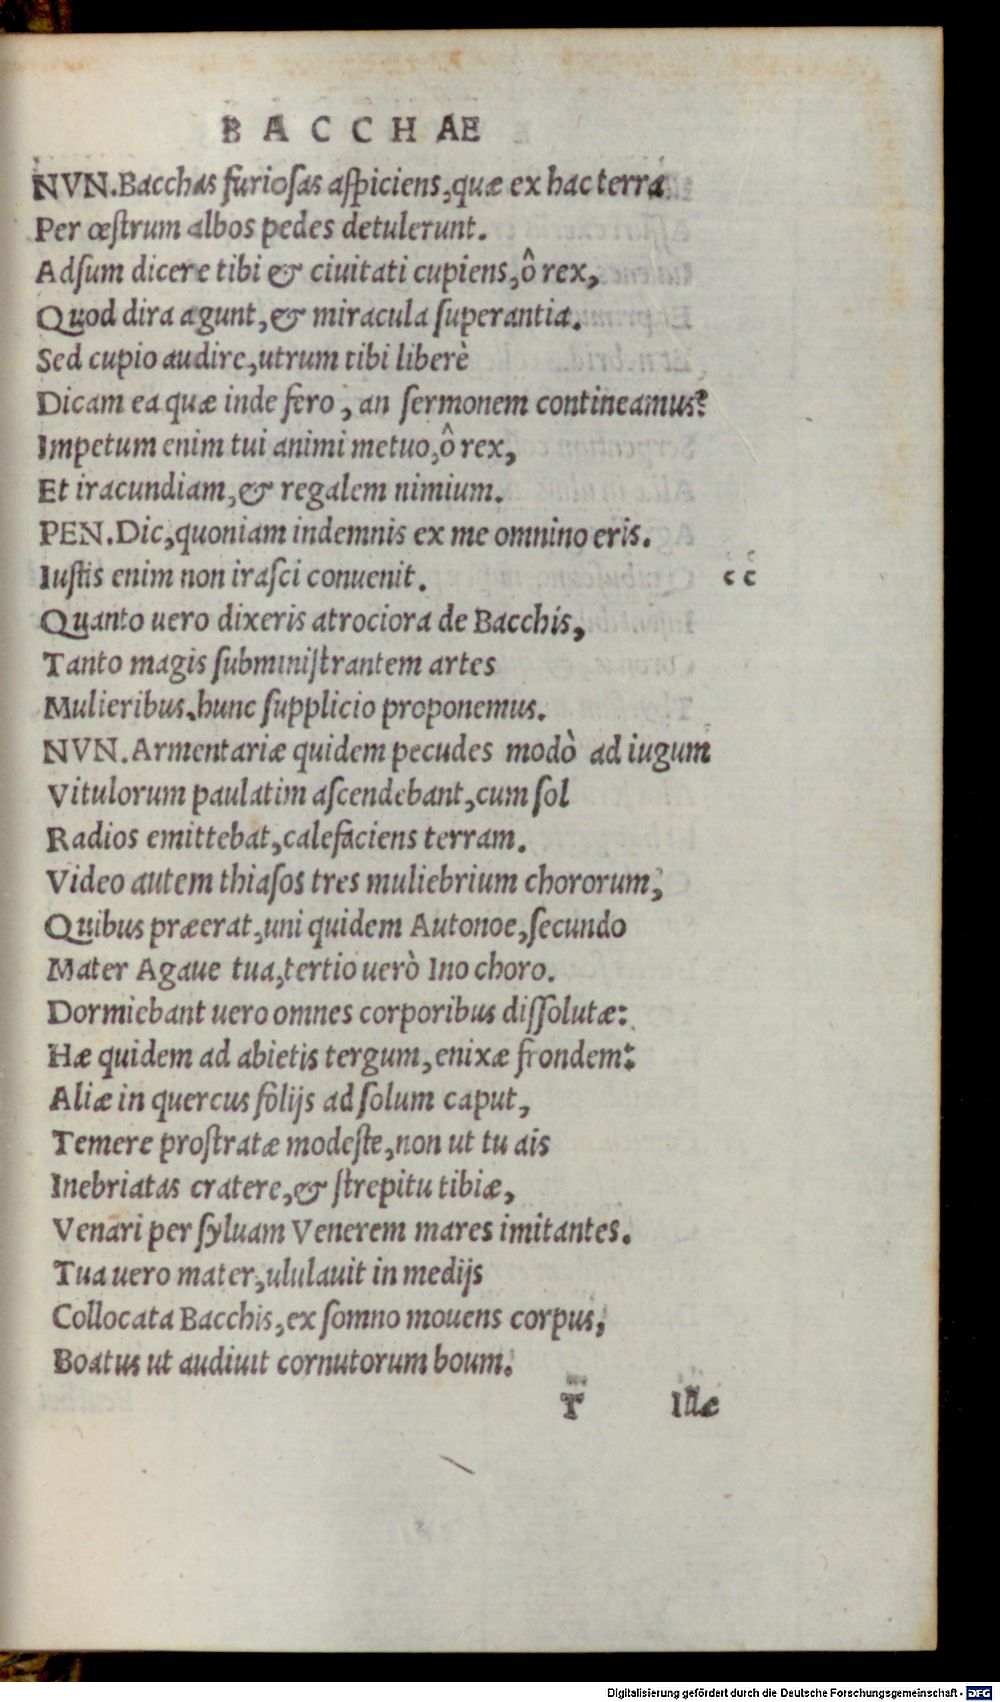 BACCHAE
NVN.Bacchas furiosas aspiciens,quæ ex hac terra
Per œstrum albos pedes detulerunt.
Adsum dicere tibi & ciuitati cupiens,ô rex,
Quod dira agunt,& miracula superantia.
Sed cupio audire,utrum tibi liberè
Dicam ea quæ inde fero, an sermonem contineamus?
Impetum enim tui animi metuo,ô rex,
Et iracundiam,& regalem nimium.
PEN.Dic,quoniam indemnis ex me omnino eris.
Iustis enim non irasci conuenit.
cc
Quanto uero dixeris atrociora de Bacchis,
Tanto magis subministrantem artes
Mulieribus,hunc supplicio proponemus.
NVN.Armentariæ quidem pecudes modò ad iugum
Vitulorum paulatim ascendebant,cum sol
Radios emittebat,calefaciens terram.
Video autem thiasos tres muliebrium chororum,
Quibus præerat,uni quidem Autonoe,secundo
Mater Agaue tua,tertio uerò Ino choro.
Dormiebant uero omnes corporibus dissolutæ:
Hæ quidem ad abietis tergum,enixæ frondem:
Aliæ in quercus folijs ad solum caput,
Temere prostratæ modeste,non ut tu ais
Inebriatas cratere,& strepitu tibiæ,
Venari per syluam Venerem mares imitantes.
Tua uero mater,ululauit in medijs
Collocata Bacchis,ex somno mouens corpus,
Boatus ut audiuit cornutorum boum.
T Illæ
Digitalisierung gefördert durch die Deutsche Forschungsgemeinschaft - DFG